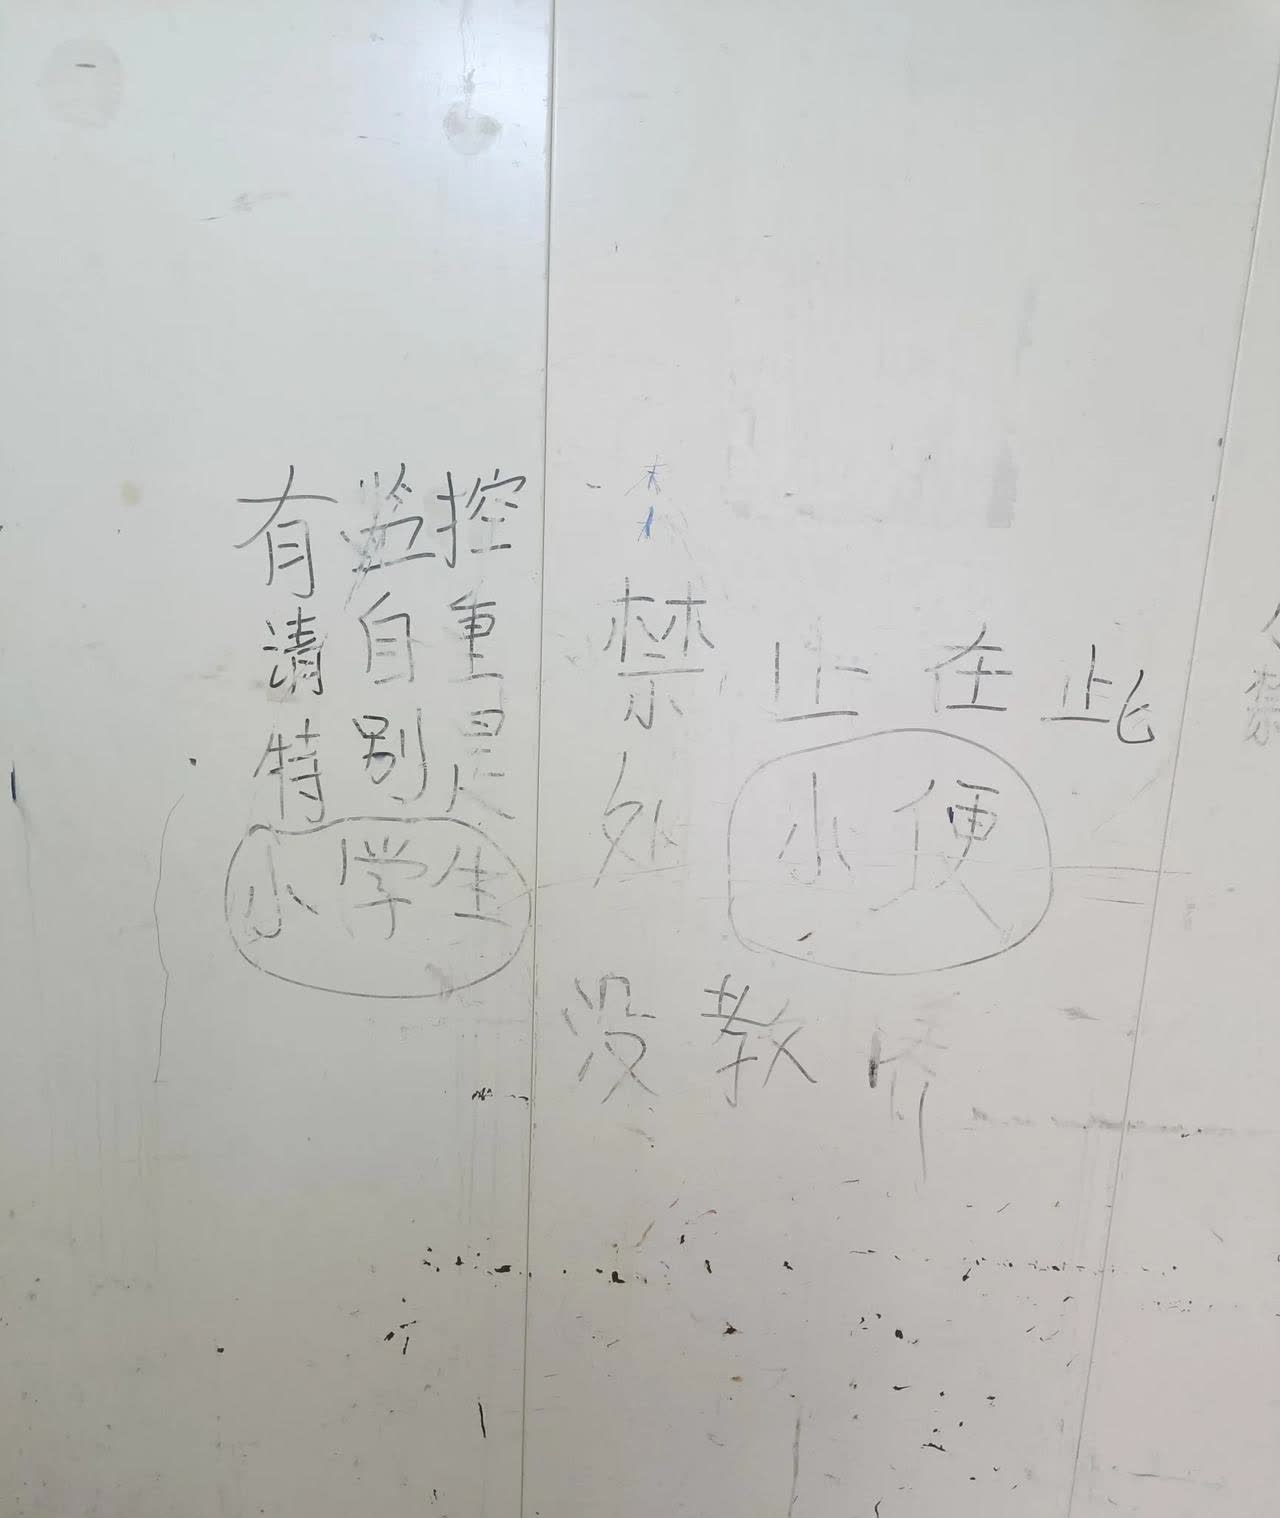 有监控
请自重
特别是
小学生
禁止在此
处小便
没教